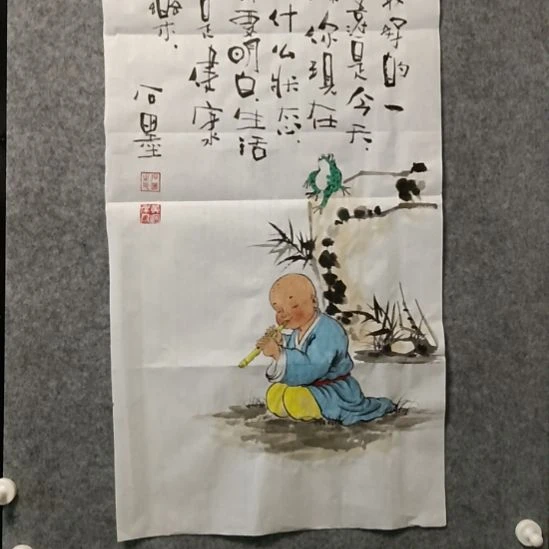 好的一
是今天,
你现在
什么状态,
要明白,生活
是健康
乐.
石墨